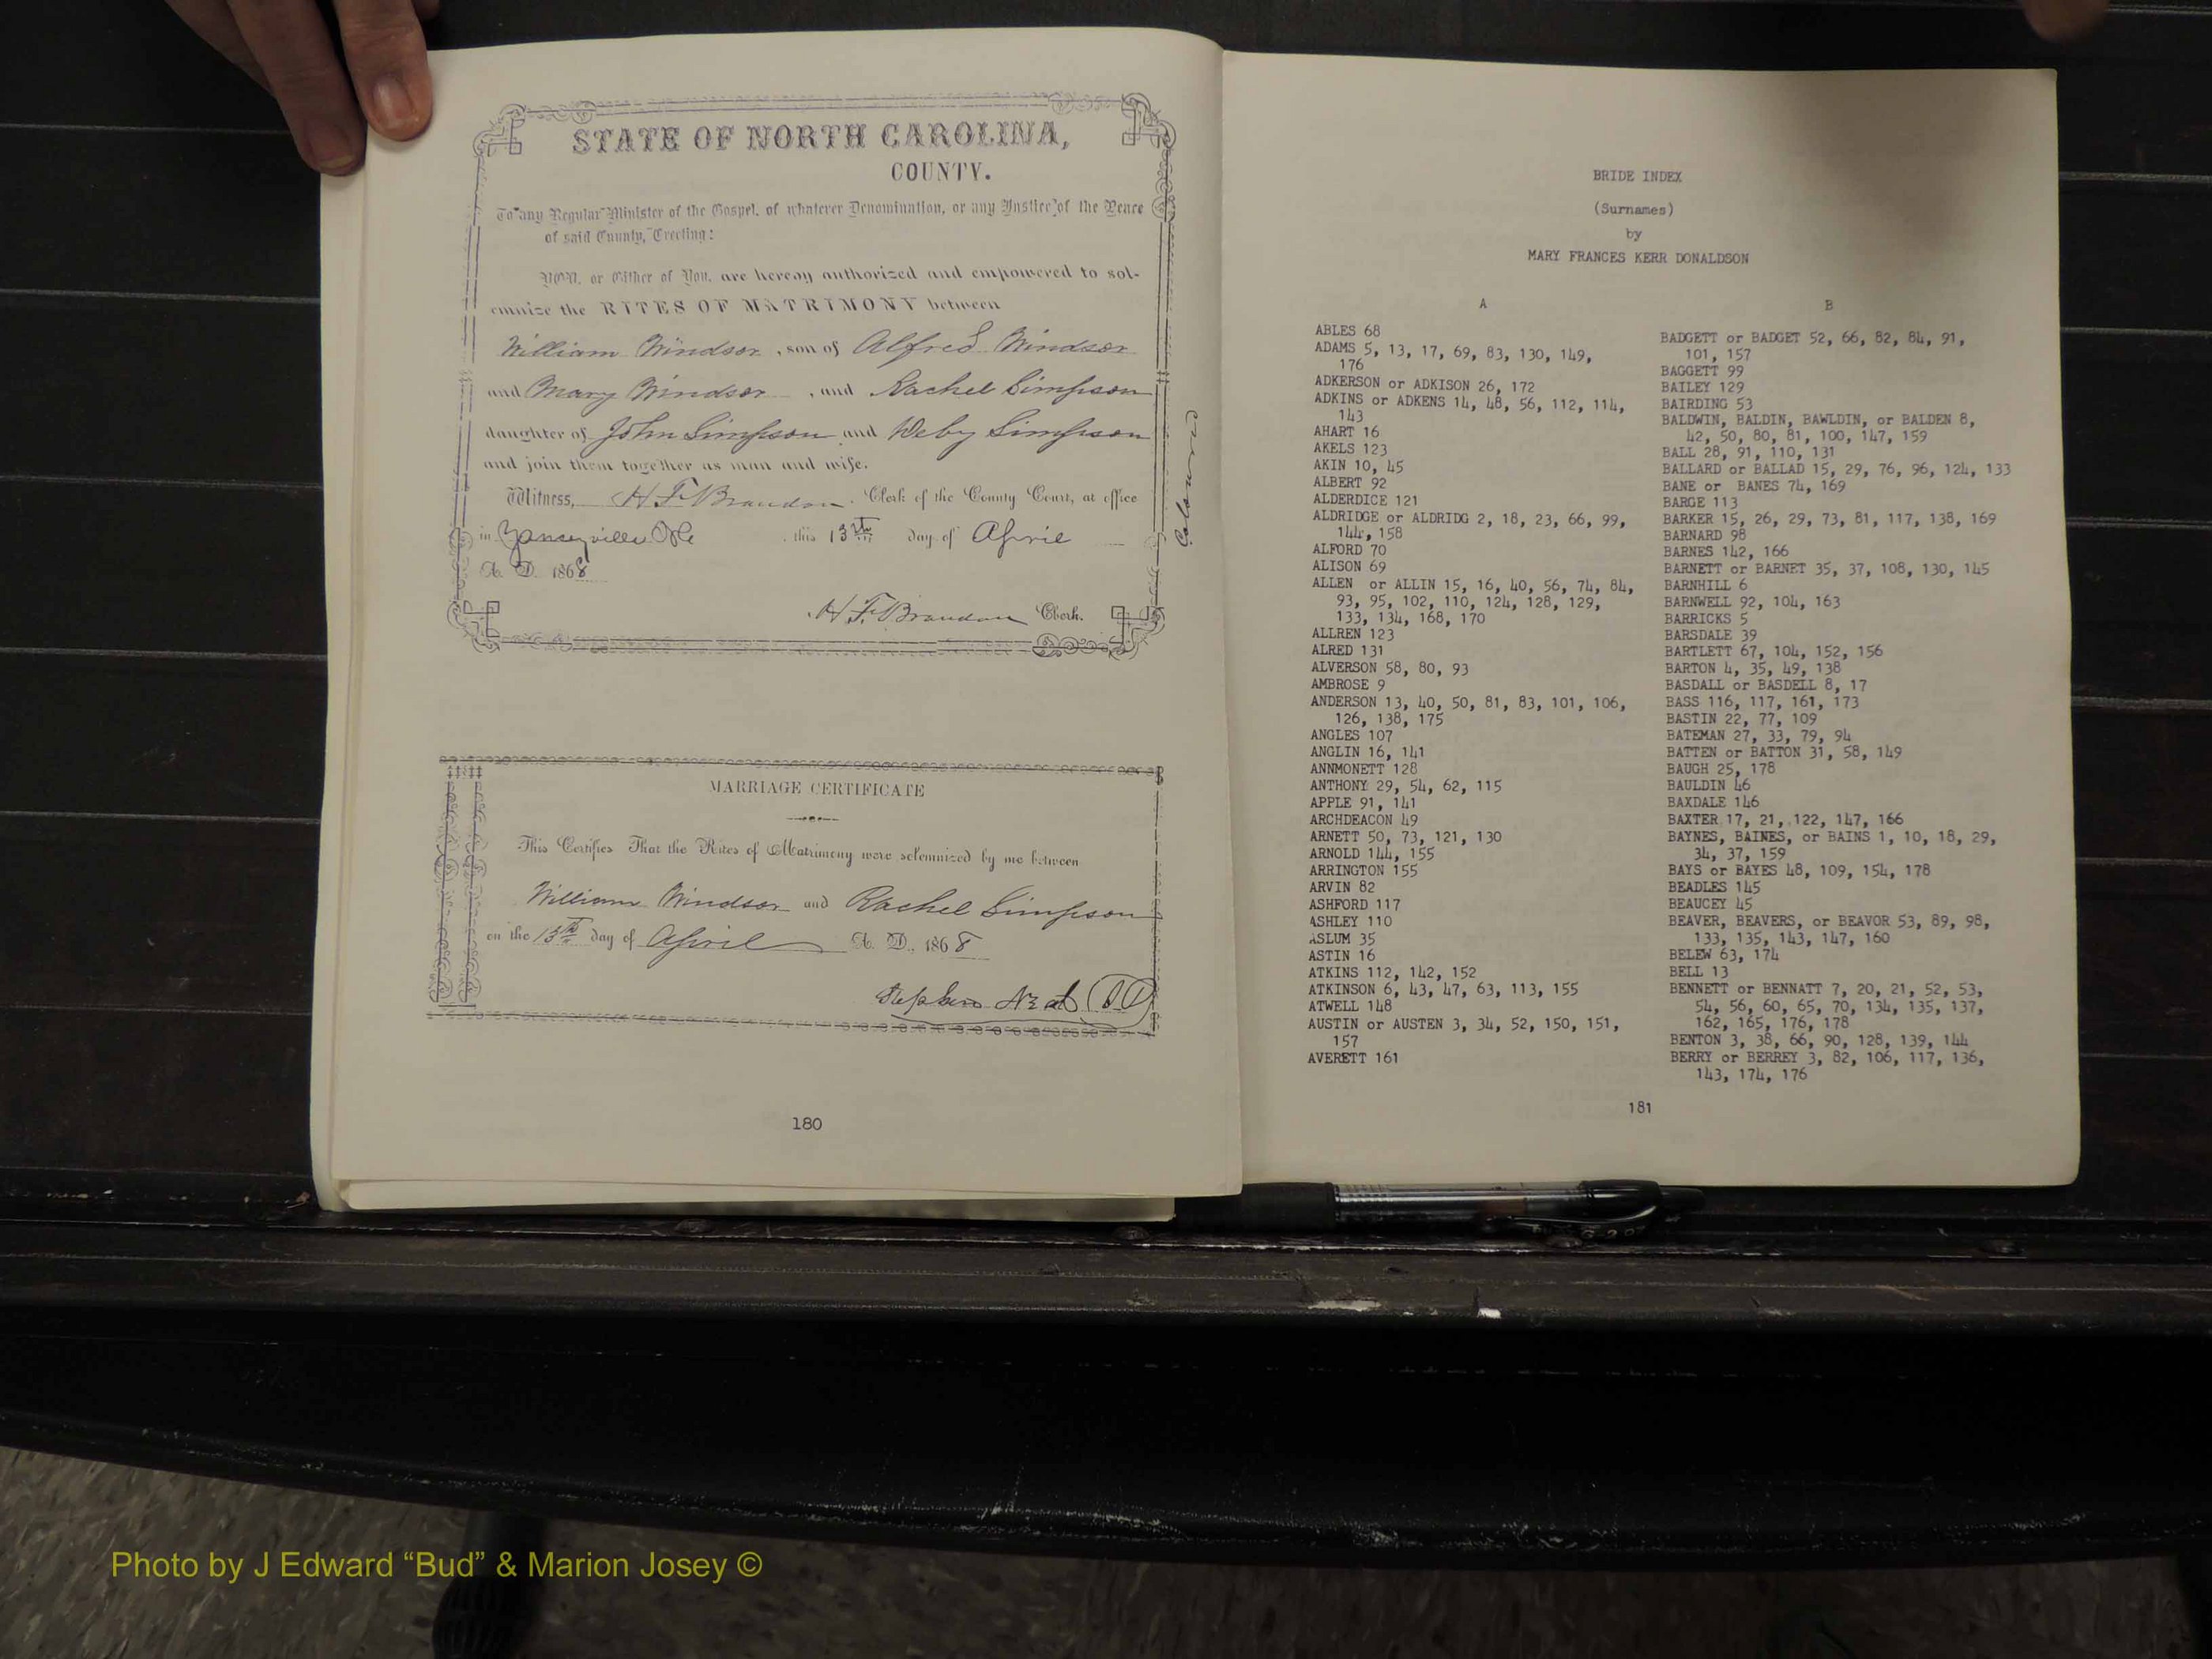 STATE OF NORTH CAROLINA,
COUNTY.
To any Regular Minister of the Gospel, of whatever Denomination, or any Justice of the Peace
of said County, Greeting:
YOU, or Either of You, are hereby authorized and empowered to sol-
emnize the RITES OF MATRIMONY between
William Windsor, son of Alfred Windsor
and Mary Windsor, and Rachel Simpson
daughter of John Simpson and Weby Simpson
and join them together as man and wife.
Witness, H F Brandon Clerk of the County Court, at office
in Yanceyville NC this 13th day of April
A. D. 1868
H F. Brandon Clerk.
Coloured
MARRIAGE CERTIFICATE
This Certifies That the Rites of Matrimony were solemnized by me between
William Windsor and Rachel Simpson
on the 13th day of April A. D., 1868
Stephen Neal
180
BRIDE INDEX
(Surnames)
by
MARY FRANCES KERR DONALDSON
A
ABLES 68
ADAMS 5, 13, 17, 69, 83, 130, 149,
176
ADKERSON or ADKISON 26, 172
ADKINS or ADKENS 14, 48, 56, 112, 114,
143
AHART 16
AKELS 123
AKIN 10, 45
ALBERT 92
ALDERDICE 121
ALDRIDGE or ALDRIDG 2, 18, 23, 66, 99,
144, 158
ALFORD 70
ALISON 69
ALLEN or ALLIN 15, 16, 40, 56, 74, 84,
93, 95, 102, 110, 124, 128, 129,
133, 134, 168, 170
ALLREN 123
ALRED 131
ALVERSON 58, 80, 93
AMBROSE 9
ANDERSON 13, 40, 50, 81, 83, 101, 106,
126, 138, 175
ANGLES 107
ANGLIN 16, 141
ANNMONETT 128
ANTHONY 29, 54, 62, 115
APPLE 91, 141
ARCHDEACON 49
ARNETT 50, 73, 121, 130
ARNOLD 144, 155
ARRINGTON 155
ARVIN 82
ASHFORD 117
ASHLEY 110
ASLUM 35
ASTIN 16
ATKINS 112, 142, 152
ATKINSON 6, 43, 47, 63, 113, 155
ATWELL 148
AUSTIN or AUSTEN 3, 34, 52, 150, 151,
157
AVERETT 161
B
BADGETT or BADGET 52, 66, 82, 84, 91,
101, 157
BAGGETT 99
BAILEY 129
BAIRDING 53
BALDWIN, BALDIN, BAWLDIN, or BALDEN 8,
42, 50, 80, 81, 100, 147, 159
BALL 28, 91, 110, 131
BALLARD or BALLAD 15, 29, 76, 96, 124, 133
BANE or BANES 74, 169
BARGE 113
BARKER 15, 26, 29, 73, 81, 117, 138, 169
BARNARD 98
BARNES 142, 166
BARNETT or BARNET 35, 37, 108, 130, 145
BARNHILL 6
BARNWELL 92, 104, 163
BARRICKS 5
BARSDALE 39
BARTLETT 67, 104, 152, 156
BARTON 4, 35, 49, 138
BASDALL or BASDELL 8, 17
BASS 116, 117, 161, 173
BASTIN 22, 77, 109
BATEMAN 27, 33, 79, 94
BATTEN or BATTON 31, 58, 149
BAUGH 25, 178
BAULDIN 46
BAXDALE 146
BAXTER 17, 21, 122, 147, 166
BAYNES, BAINES, or BAINS 1, 10, 18, 29,
34, 37, 159
BAYS or BAYES 48, 109, 154, 178
BEADLES 145
BEAUCEY 45
BEAVER, BEAVERS, or BEAVOR 53, 89, 98,
133, 135, 143, 147, 160
BELEW 63, 174
BELL 13
BENNETT or BENNATT 7, 20, 21, 52, 53,
54, 56, 60, 65, 70, 134, 135, 137,
162, 165, 176, 178
BENTON 3, 38, 66, 90, 128, 139, 144
BERRY or BERREY 3, 82, 106, 117, 136,
143, 174, 176
181
Photo by J Edward “Bud” & Marion Josey ©